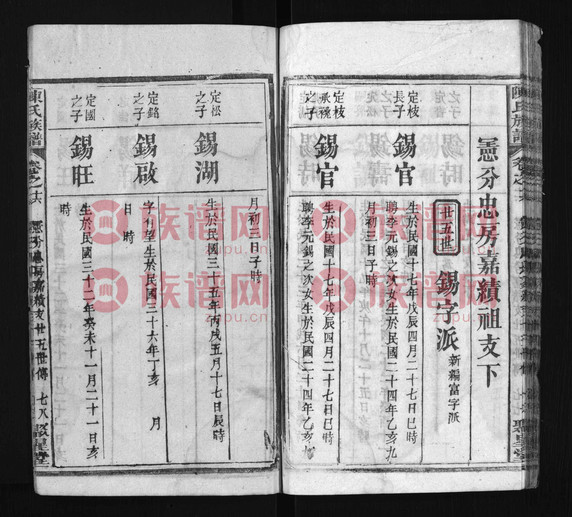 憲分忠房嘉績祖支下
廿五世
錫字派
新編富字派
定枝
長子
錫官
生於民國十七年戊辰四月二十七日巳時
聘李元錫之次女生於民國二十四年乙亥九
月初三日子時
定枝
承祧
子
錫官
生於民國十七年戊辰四月二十七日巳時
聘李元錫之次女生於民國二十四年乙亥九
月初三日子時
定松
之子
錫湖
生於民國三十五年丙戌五月十七日辰時
定銘
之子
錫啟
字行望生於民國三十六年丁亥 月
日 時
定國
之子
錫旺
生於民國三十二年癸未十一月二十一日亥
時
陳氏族譜
卷之十六
憲分忠房嘉績支廿五世傳
七八
聚星堂
陳氏族譜
聚星堂
族谱网
zupu.cn
族谱网
zupu.cn
族谱网
zupu.cn
族谱网
zupu.cn